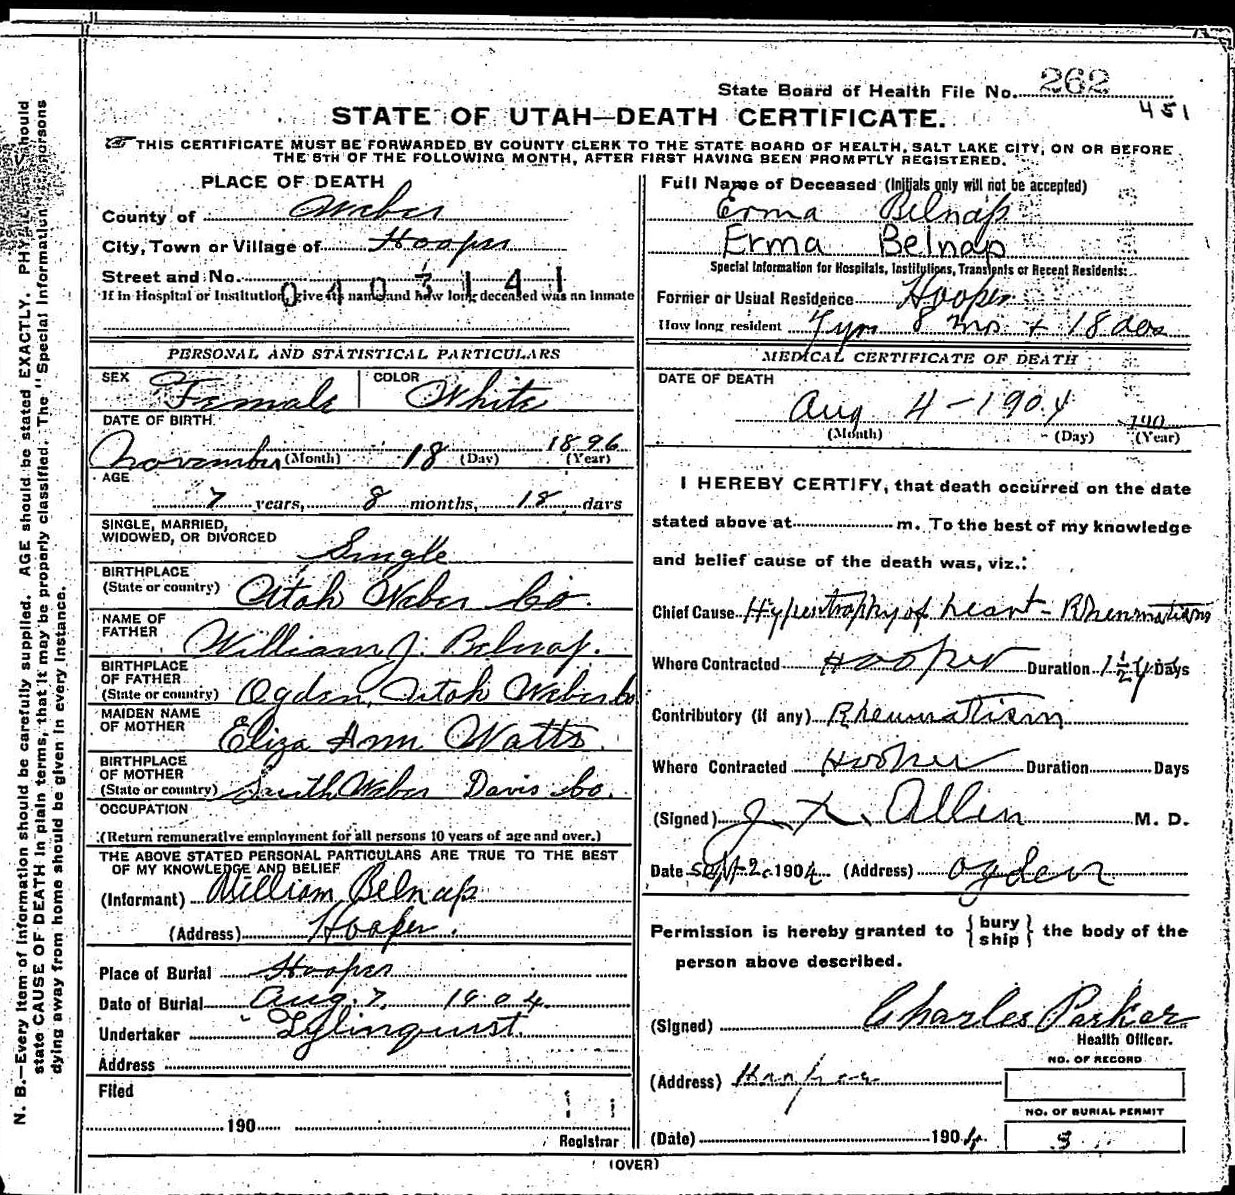 State Board of Health File No. 262
451
STATE OF UTAH—DEATH CERTIFICATE.
THIS CERTIFICATE MUST BE FORWARDED BY COUNTY CLERK TO THE STATE BOARD OF HEALTH, SALT LAKE CITY, ON OR BEFORE
THE 5TH OF THE FOLLOWING MONTH, AFTER FIRST HAVING BEEN PROMPTLY REGISTERED.
PLACE OF DEATH
County of Weber
City, Town or Village of Hooper
Street and No.
0403141
If in Hospital or Institution, give its name and how long deceased was an Inmate
PERSONAL AND STATISTICAL PARTICULARS
SEX Female COLOR White
DATE OF BIRTH
November (Month) 18 (Day) 1896 (Year)
AGE
7 years, 8 months, 18 days
SINGLE, MARRIED,
WIDOWED, OR DIVORCED Single
BIRTHPLACE
(State or country) Utah Weber Co.
NAME OF
FATHER William J. Belnap.
BIRTHPLACE
OF FATHER
(State or country) Ogden, Utah Weber Co
MAIDEN NAME
OF MOTHER Eliza Ann Watts.
BIRTHPLACE
OF MOTHER
(State or country) South Weber Davis Co.
OCCUPATION
(Return remunerative employment for all persons 10 years of age and over.)
THE ABOVE STATED PERSONAL PARTICULARS ARE TRUE TO THE BEST
OF MY KNOWLEDGE AND BELIEF
(Informant) William Belnap
(Address) Hooper.
Place of Burial Hooper
Date of Burial Aug. 7, 1904.
Undertaker
Address
Filed
190
Registrar
Full Name of Deceased (Initials only will not be accepted)
Erma Belnap
Erma Belnap
Special Information for Hospitals, Institutions, Transients or Recent Residents:
Former or Usual Residence Hooper
How long resident 7 yrs 8 mos + 18 das
MEDICAL CERTIFICATE OF DEATH
DATE OF DEATH
Aug 4-1904 190
(Month) (Day) (Year)
I HEREBY CERTIFY, that death occurred on the date
stated above at m. To the best of my knowledge
and belief cause of the death was, viz.:
Chief Cause Hypertrophy of heart - Rheumatism
Where Contracted Hooper Duration 1 1/2 yrs Days
Contributory (if any) Rheumatism
Where Contracted Hooper Duration Days
(Signed) Allen M. D.
Date Sept 2 1904 (Address) Ogden
Permission is hereby granted to {bury
ship} the body of the
person above described.
(Signed) Charles Parker
Health Officer.
(Address) Hooper
NO. OF RECORD
NO. OF BURIAL PERMIT
(Date) 1904. 3
(OVER)
N. B.—Every item of information should be carefully supplied. AGE should be stated EXACTLY. PHYSICIANS should
state CAUSE OF DEATH in plain terms, that it may be properly classified. The "Special Information" for persons
dying away from home should be given in every instance.